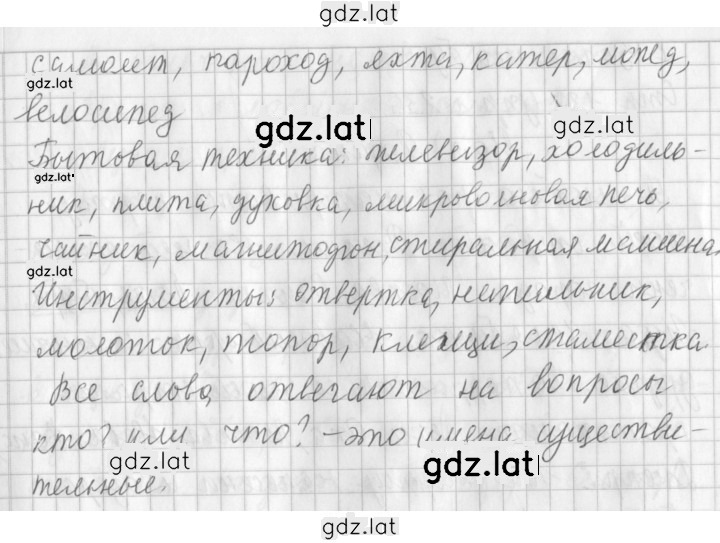 gdz.lat
самолет, пароход, яхта, катер, мопед,
gdz.lat
велосипед
gdz.lat
gdz.lat
Бытовая техника: телевизор, холодиль-
gdz.lat
ник, плита, духовка, микроволновая печь,
чайник, магнитофон, стиральная машина.
gdz.lat
Инструменты: отвертка, напильник,
молоток, топор, клещи, стаместка.
Все слова отвечают на вопросы
кто? или что? – это имена существи-
gdz.lat
gdz.lat
тельные.
gdz.lat